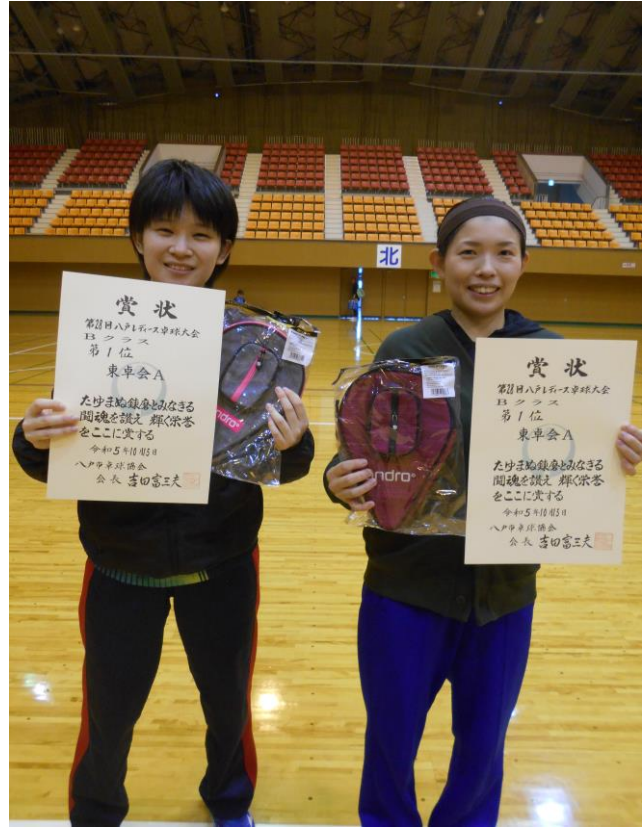 北
賞状
第28回八戸レディース卓球大会
Bクラス
第1位
東卓会A
たゆまぬ錬磨とみなぎる
闘魂を讃え 輝く栄誉
をここに賞する
令和5年10月15日
八戸市卓球協会
会長 吉田富三夫
andro
賞状
第28回八戸レディース卓球大会
Bクラス
第1位
東卓会A
たゆまぬ錬磨とみなぎる
闘魂を讃え 輝く栄誉
をここに賞する
令和5年10月15日
八戸市卓球協会
会長 吉田富三夫